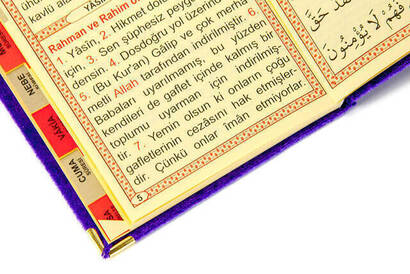 kavlu alal
YÂSİN
Rahman ve Rahim o
1. Yâsîn. 2. Hikmet dolu
3. Sen şüphesiz peyga
densin. 4. Dosdoğru yol üzerinde
5. (Bu Kur'an) Gâlip ve çok merha
metli Allah tarafından indirilmiştir. 6.
Babaları uyarılmamış, bu yüzden
kendileri de gaflet içinde kalmış bir
toplumu uyarman için indirilmiş-
tir. 7. Yemin olsun ki onların çoğu
gafletlerinin cezasını hak etmiştir-
dir. Çünkü onlar iman etmiyorlar.
5
فَهُمْ لَا يُؤْمِنُونَ
NEBE
VAKIA
CUMA
SURESİ